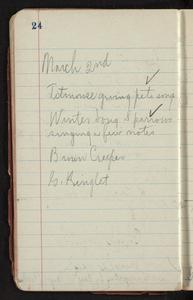 24
March 2nd
Titmouse giving pete song
Winter Song Sparrow
singing a few notes
Brown Creeper
G. Kinglet